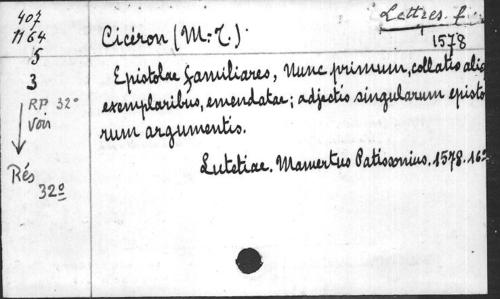 407
1164
5
3
RP 32°
Voir
Rés
32º
Lettres. f.
1578
Cicéron (M.-T.)
Epistolae familiares, Nunc primum, collatio
exemplaribus, emendatae; adjectis singularum episto
rum argumentis.
Lutetiae. Mamertus Patissonius. 1578. 16º